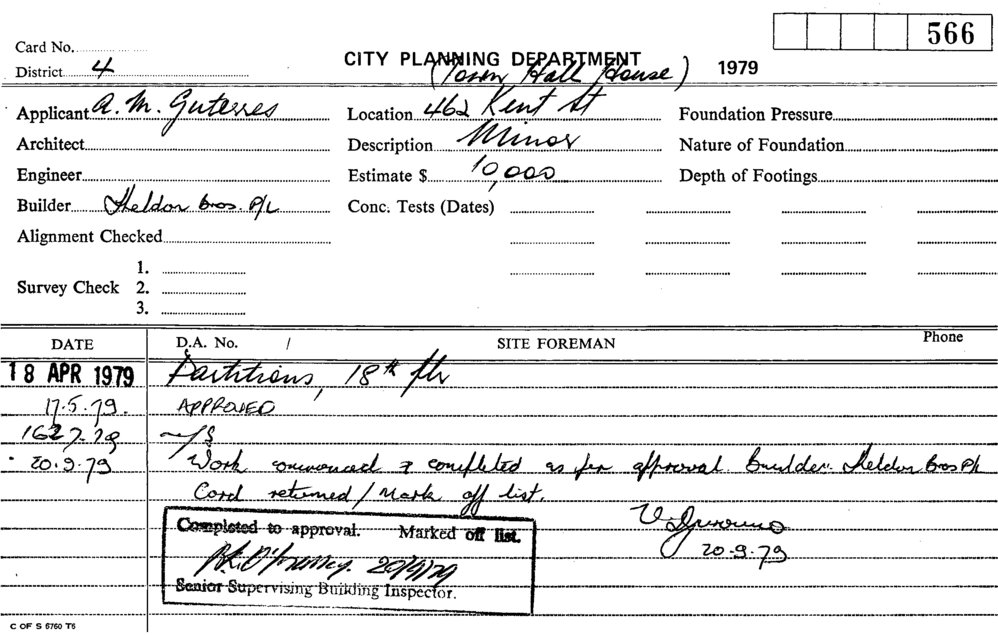 566
Card No.
CITY PLANNING DEPARTMENT 1979
District 4
(Town Hall House)
Applicant A. M. Guterres Location 462 Kent St Foundation Pressure
Architect Description Minor Nature of Foundation
Engineer Estimate $ 10,000 Depth of Footings
Builder Heldon Bros. P/L Conc. Tests (Dates)
Alignment Checked
1.
Survey Check 2.
3.
DATE D.A. No. / SITE FOREMAN Phone
18 APR 1979 Partitions, 18th flr
17.5.79. APPROVED
7.79 /S
20.9.79 Work commenced & completed as per approval. Builder. Heldon Bros P/L
Card returned / Mark off list.
Completed to approval. Marked off list.
20.9.79
20/9/79
Senior Supervising Building Inspector.
C OF S 6760 T6